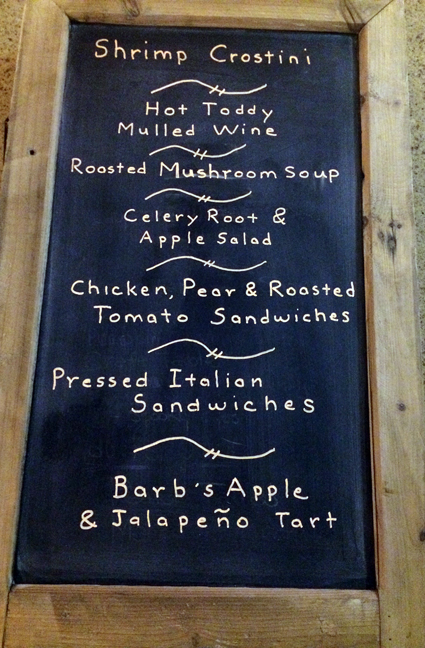 Shrimp Crostini
Hot Toddy
Mulled Wine
Roosted Mushroom Soup
Celery Root &
Apple Salad
Chicken, Pear & Roasted
Tomato Sandwiches
Pressed Italian
Sandwiches
Barb's Apple
& Jalapeño Tart